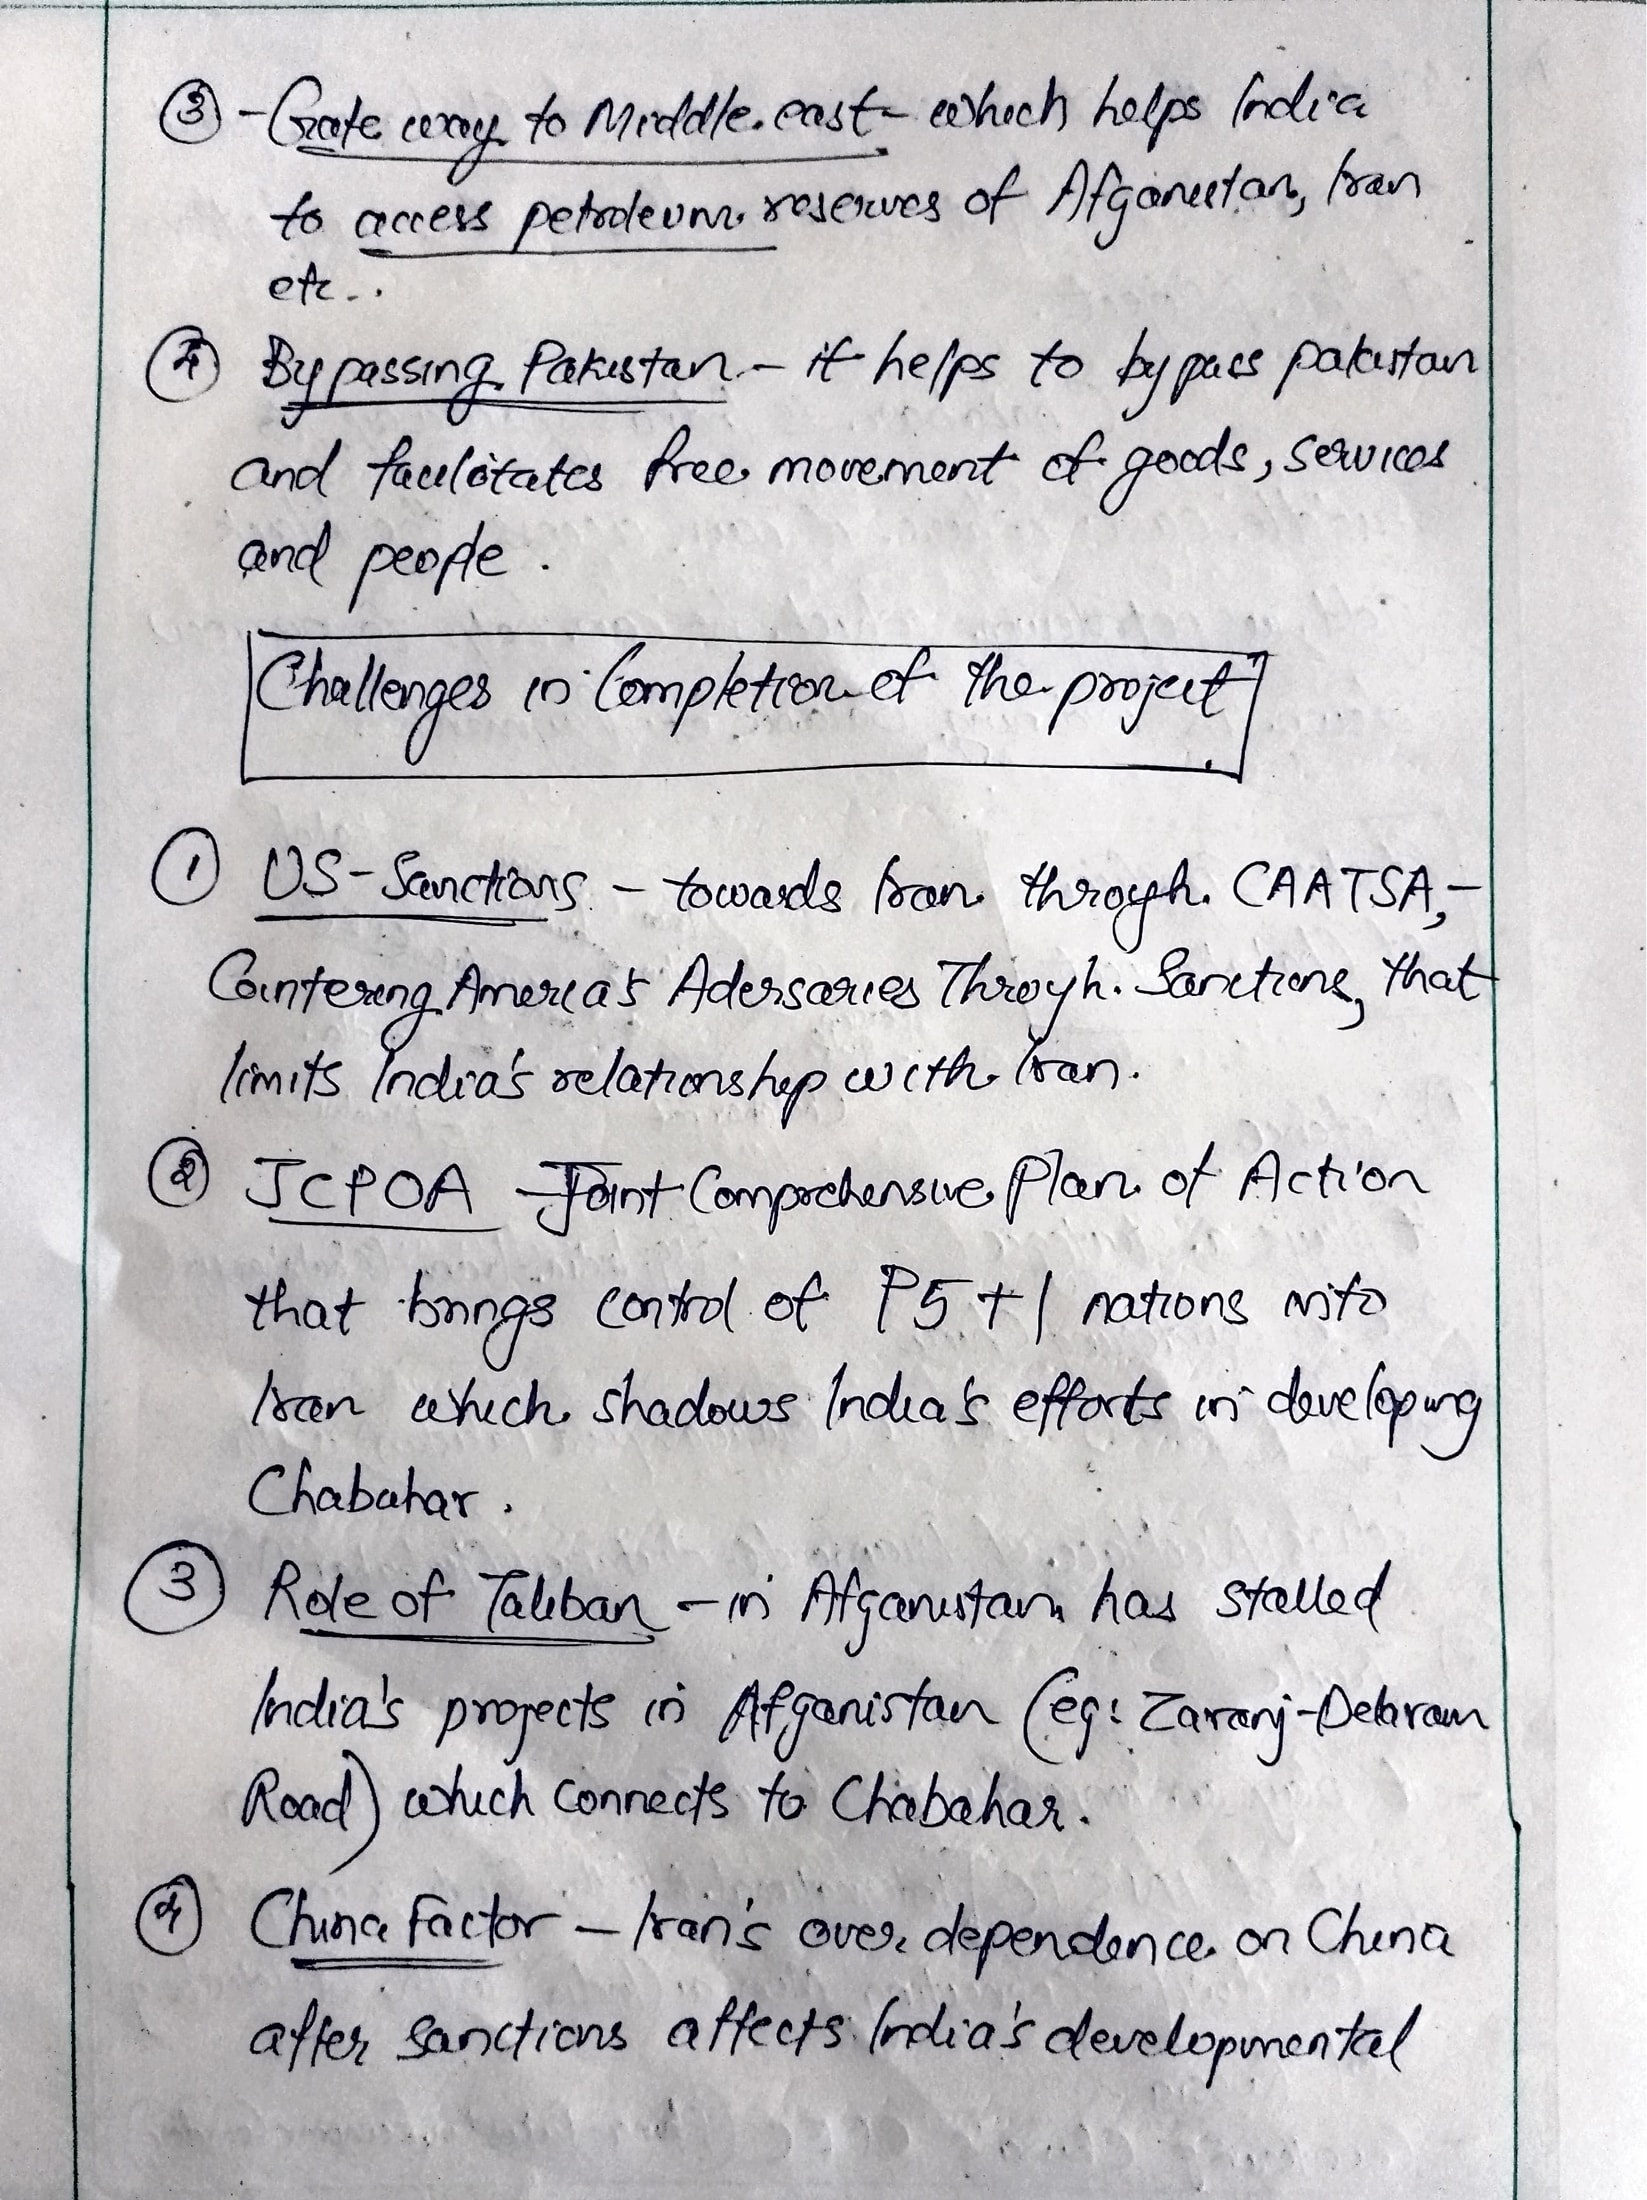 ③ - Gate way to Middle east - which helps India
to access petroleum reserves of Afganistan, Iran
etc..
④ Bypassing Pakistan - it helps to bypass pakistan
and facilitates free movement of goods, services
and people.
Challenges in Completion of the project
① US-Sanctions - towards Iran through CAATSA, -
Countering America's Adersaries Through Sanctions, that
limits India's relationship with Iran.
② JCPOA - Joint Comprehensive Plan of Action
that brings control of P5+1 nations into
Iran which shadows India's efforts in developing
Chabahar.
③ Role of Taliban - in Afganistan has stalled
India's projects in Afganistan (eg: Zaranj-Delaram
Road) which connects to Chabahar.
④ China Factor - Iran's over dependence on China
after sanctions affects India's developmental